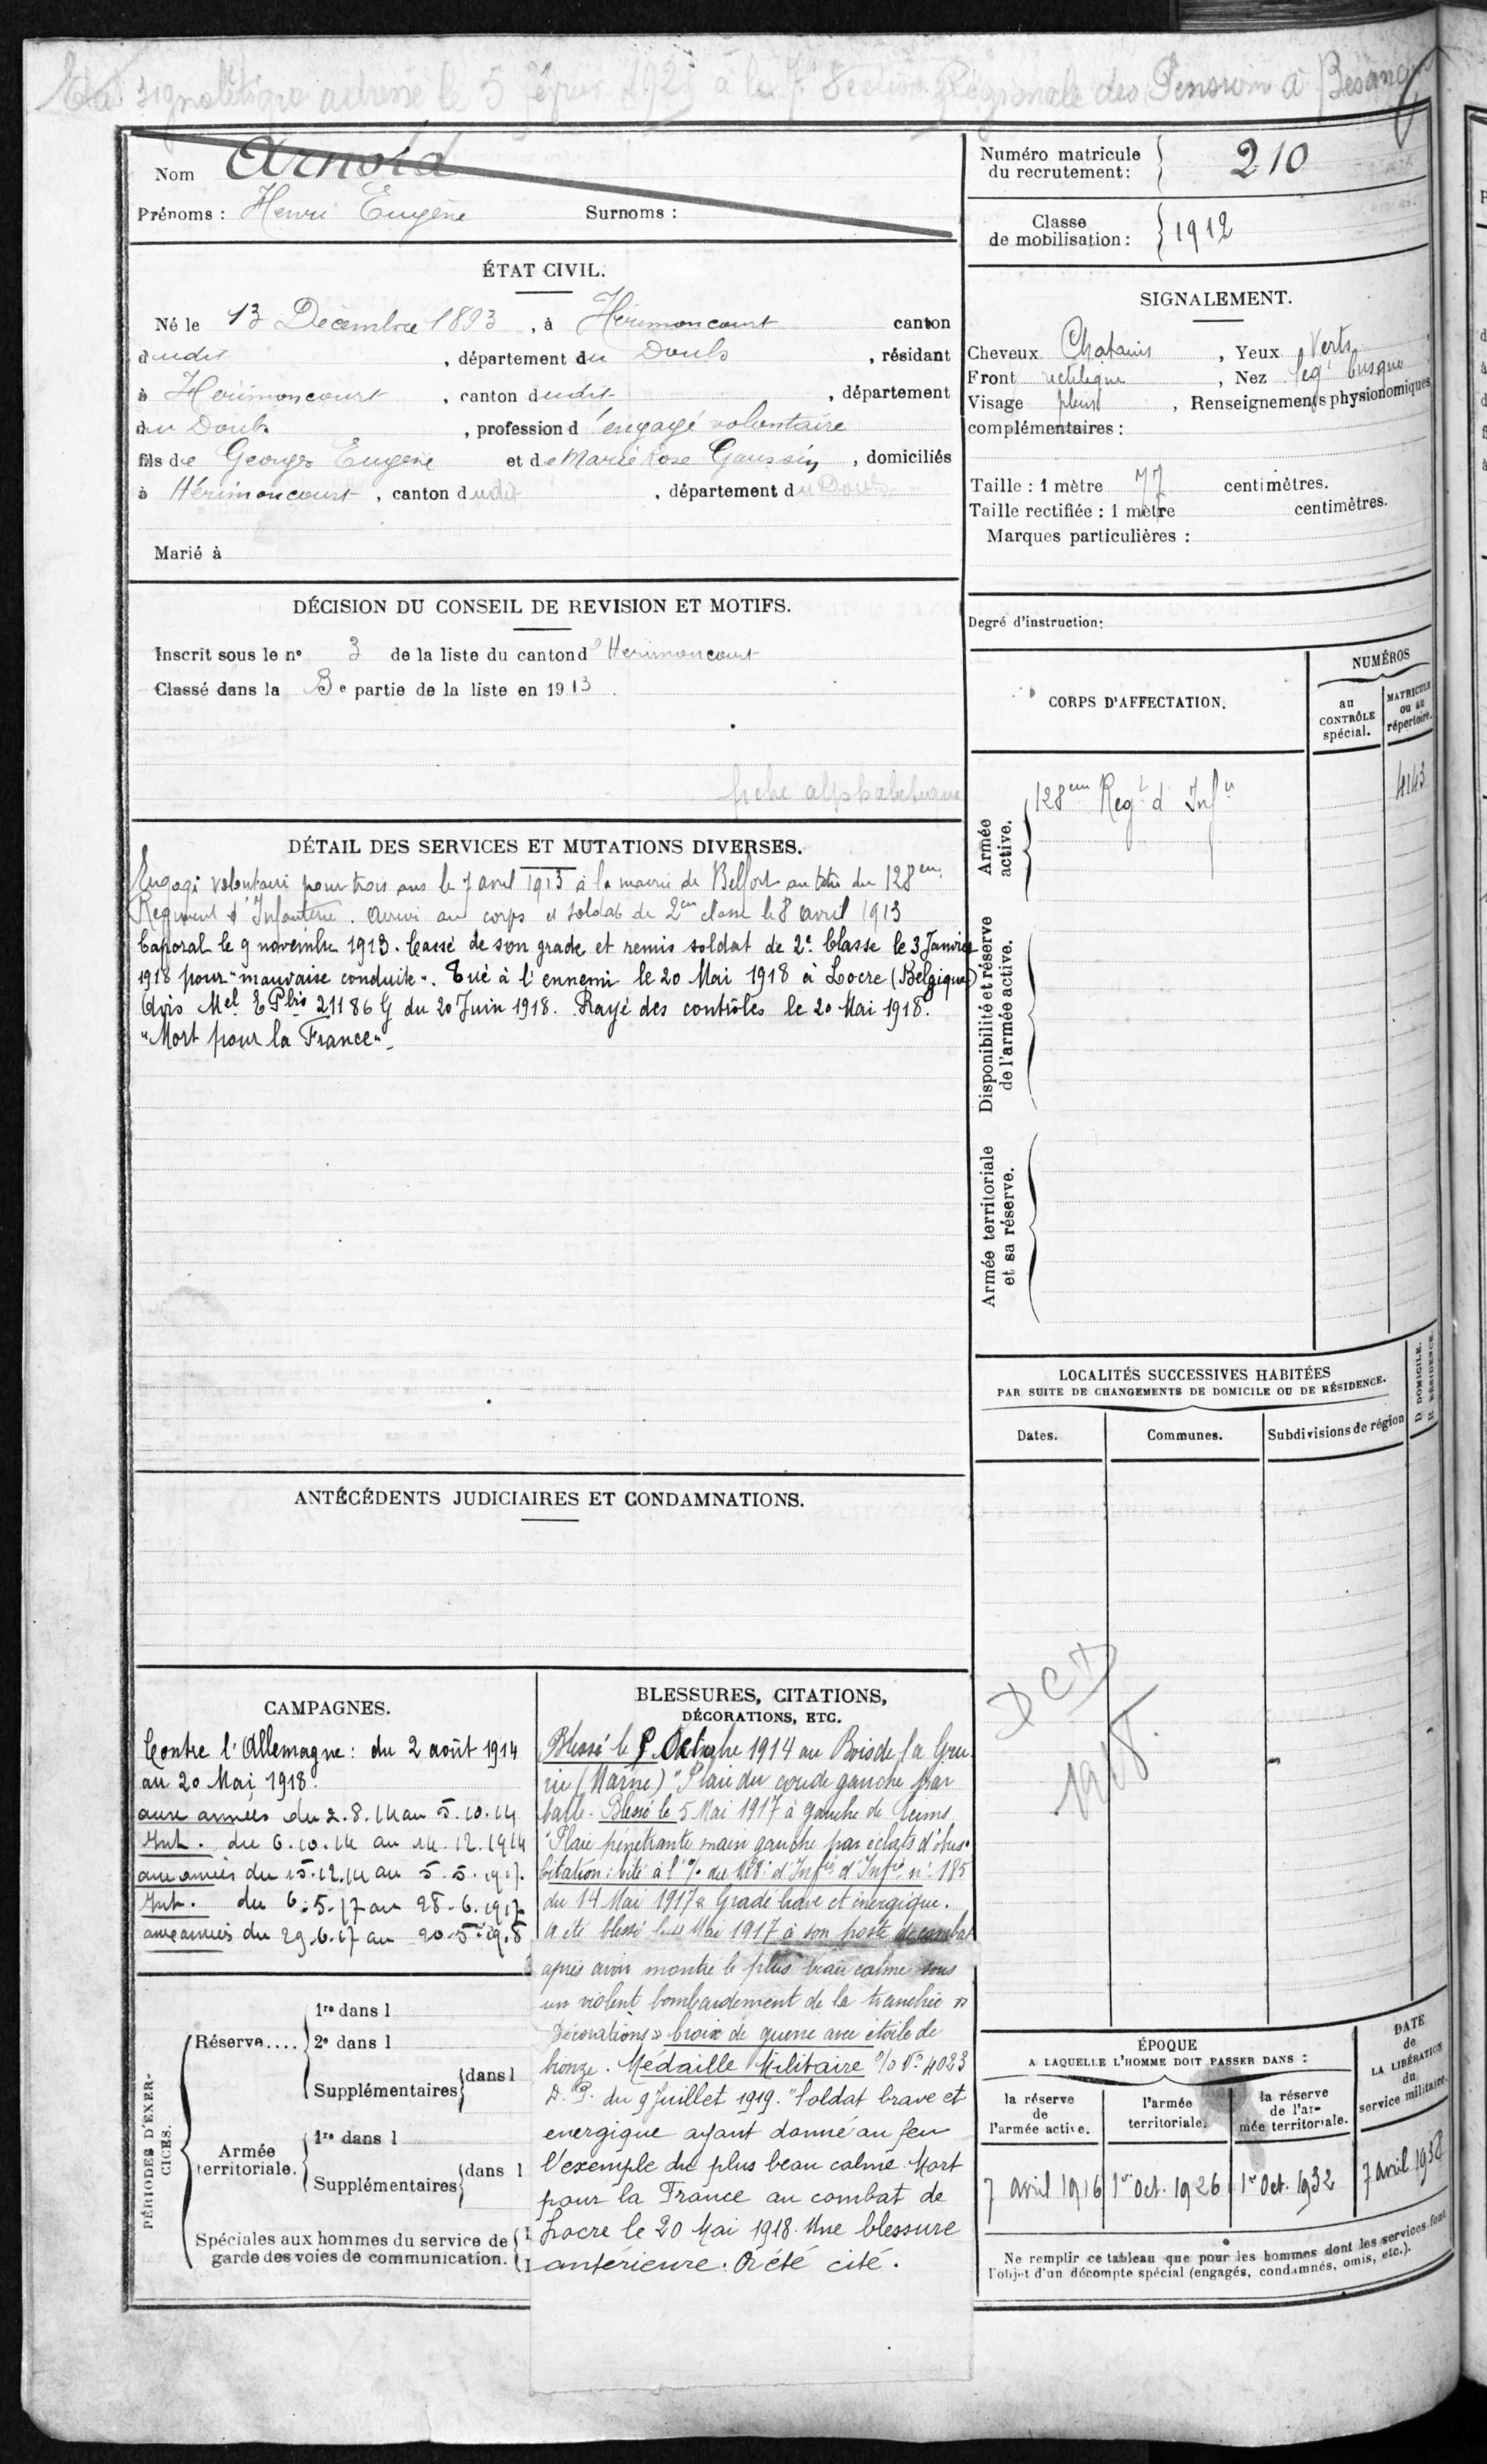 signalétique adressé le 5 192 à la 7e Section Régionale des Pensions à Besançon
Nom Arnold
Prénoms : Henri Eugène Surnoms :
ÉTAT CIVIL.
Né le 13 Décembre 1893, à Hérimoncourt canton
dudit, département du Doubs, résidant
à Hérimoncourt, canton dudit, département
du Doubs, profession d'engagé volontaire
fils de Georges Eugène et de Marie Rose Gaussin, domiciliés
à Hérimoncourt, canton dudit, département du Doubs
Marié à
DÉCISION DU CONSEIL DE REVISION ET MOTIFS.
Inscrit sous le no 3 de la liste du canton d'Hérimoncourt
Classé dans la 3e partie de la liste en 1913.
fiche alphabétique
DÉTAIL DES SERVICES ET MUTATIONS DIVERSES.
Engagé volontaire pour trois ans le 7 avril 1913 à la mairie de Belfort au titre du 128em
Régiment d'Infanterie. Arrivé au corps et soldat de 2em classe le 8 avril 1913
Caporal le 9 novembre 1913. Cassé de son grade et remis soldat de 2e Classe le 3 Janvier
1918 pour "mauvaise conduite". Tué à l'ennemi le 20 Mai 1918 à Locre (Belgique)
Avis Mel 21186 G du 20 Juin 1918. Rayé des contrôles le 20 Mai 1918.
"Mort pour la France".
ANTÉCÉDENTS JUDICIAIRES ET CONDAMNATIONS.
CAMPAGNES.
Contre l'Allemagne : du 2 août 1914
au 20 Mai 1918.
aux armées du 2.8.14 au 5.10.14
Int. du 6.10.14 au 14.12.1914
aux armées du 15.12.14 au 5.5.1917.
Int. du 6.5.17 au 28.6.1917
aux armées du 29.6.17 au 20.5.1918
BLESSURES, CITATIONS,
DÉCORATIONS, ETC.
Blessé le Octobre 1914 au Bois de la Gru-
rie (Marne) "Plaie du coude gauche par
balle. Blessé le 5 Mai 1917 à gauche de Reims
"Plaie pénétrante main gauche par éclats d'obus.
Citation : Cité à l'% du 128e d'Infie n° 185
du 14 Mai 1917 "Gradé brave et énergique.
A été blessé le Mai 1917 à son poste de combat
après avoir montré le plus beau calme sous
un violent bombardement de la tranchée »
Décorations » Croix de guerre avec étoile de
bronze. Médaille Militaire %o No 4023
D. du 9 Juillet 1919. "Soldat brave et
energique ayant donné au feu
l'exemple du plus beau calme. Mort
pour la France au combat de
Locre le 20 Mai 1918. Une blessure
antérieure. A été cité.
PÉRIODES D'EXERCICES.
Réserve....
1re dans l
2e dans l
Supplémentaires dans l
Armée territoriale.
1re dans l
Supplémentaires dans l
Spéciales aux hommes du service de
garde des voies de communication.
Numéro matricule
du recrutement : 210
Classe
de mobilisation : 1912
SIGNALEMENT.
Cheveux Chatains, Yeux Verts
Front rectiligne, Nez légt busqué
Visage plein, Renseignements physionomiques
complémentaires :
Taille : 1 mètre 77 centimètres.
Taille rectifiée : 1 mètre centimètres.
Marques particulières :
Degré d'instruction :
CORPS D'AFFECTATION.
NUMÉROS
au
CONTRÔLE
spécial.
MATRICULE
ou au
répertoire.
Armée
active.
128em Regt d'Infie
4143
Disponibilité et réserve
de l'armée active.
Armée territoriale
et sa réserve.
LOCALITÉS SUCCESSIVES HABITÉES
PAR SUITE DE CHANGEMENTS DE DOMICILE OU DE RÉSIDENCE.
D DOMICILE.
R RÉSIDENCE.
Dates.
Communes.
Subdivisions de région
DCD
1918.
ÉPOQUE
A LAQUELLE L'HOMME DOIT PASSER DANS :
DATE
de
LA LIBÉRATION
du
service militaire.
la réserve
de
l'armée active.
l'armée
territoriale.
la réserve
de l'ar-
mée territoriale.
7 avril 1916
1er Oct. 1926
1er Oct. 1932
7 avril 1938
Ne remplir ce tableau que pour les hommes dont les services font
l'objet d'un décompte spécial (engagés, condamnés, omis, etc.).